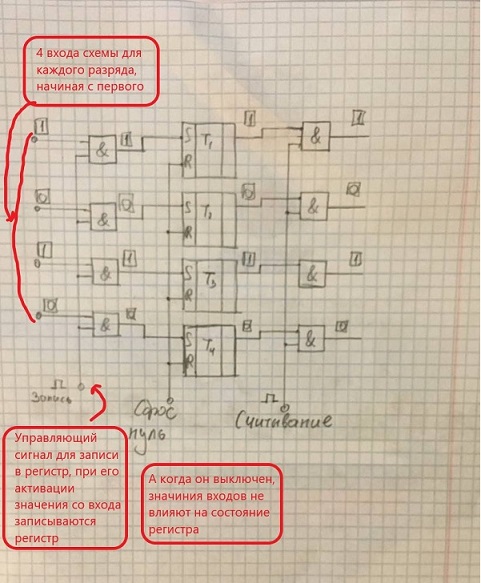 4 входа схемы для
каждого разряда,
начиная с первого
1 1 1 1
& S T₁ &
R
0 0 0 0
& S T₂ &
R
1 1 1 1
& S T₃ &
R
0 0 0 0
& S T₄ &
R
Запись
Сброс
нуль
Считывание
Управляющий
сигнал для записи
в регистр, при его
активации
значения со входа
записываются
регистр
А когда он выключен,
значиния входов не
влияют на состояние
регистра